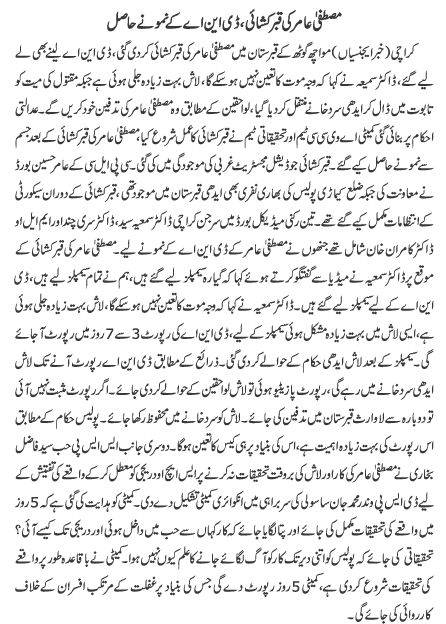 مصطفیٰ عامر کی قبر کشائی، ڈی این اے کے نمونے حاصل
کراچی (خبر ایجنسیاں) مواچھ گوٹھ کے قبرستان میں مصطفیٰ عامر کی قبر کشائی کر دی گئی، ڈی این اے لینے بھی لے
لیے گئے، ڈاکٹر سمعیہ نے کہا کہ وجہ موت کا تعین نہیں ہو سکے گا، لاش بہت زیادہ جلی ہوئی ہے جبکہ مقتول کی میت کو
تابوت میں ڈال کر ایدھی سرد خانے منتقل کر دیا گیا، لواحقین کے مطابق وہ مصطفیٰ عامر کی تدفین خود کریں گے۔ عدالتی
احکام پر بنائی گئی کمیٹی اے وی سی سی ٹیم اور تحقیقاتی ٹیم نے قبر کشائی کا عمل شروع کیا، مصطفیٰ عامر کی قبر کشائی کے بعد جسم
سے نمونے حاصل کیے گئے۔ قبر کشائی جوڈیشل مجسٹریٹ غربی کی موجودگی میں کی گئی۔ سی پی ایل سی کے عامر حسین بورڈ
نے معاونت کی جبکہ ضلع کیماڑی پولیس کی بھاری نفری بھی ایدھی قبرستان میں موجود تھی، قبر کشائی کے دوران سیکورٹی
کے انتظامات مکمل کیے گئے تھے۔ تین رکنی میڈیکل بورڈ میں سرجن کراچی ڈاکٹر سمعیہ سید، ڈاکٹر سری چند اور ایم ایل او
ڈاکٹر کامران خان شامل تھے جنھوں نے مصطفیٰ عامر کے ڈی این اے کے نمونے لیے۔ مصطفیٰ عامر کی قبر کشائی کے
موقع پر ڈاکٹر سمعیہ نے میڈیا سے گفتگو کرتے ہوئے کہا کہ گیارہ سیمپلز لیے گئے ہیں، ہم نے تمام سیمپلز لیے ہیں، ڈی
این اے کے لیے سیمپلز لیے گئے ہیں۔ ڈاکٹر سمعیہ نے کہا کہ وجہ موت کا تعین نہیں ہو سکے گا، لاش بہت زیادہ جلی ہوئی
ہے، ایسی لاش میں بہت زیادہ مشکل ہوئی سیمپلز کے لیے، ڈی این اے کی رپورٹ 3 سے 7 روز میں رپورٹ آ جائے
گی۔ سیمپلز کے بعد لاش ایدھی حکام کے حوالے کر دی گئی۔ ذرائع کے مطابق ڈی این اے رپورٹ آنے تک لاش
ایدھی سرد خانے میں رہے گی، رپورٹ پازیٹیو ہوئی تو لاش لواحقین کے حوالے کر دی جائے۔ اگر رپورٹ مثبت نہیں آئی
تو دوبارہ سے لاوارث قبرستان میں تدفین کی جائے۔ لاش کو سرد خانے میں محفوظ رکھا جائے۔ پولیس حکام کے مطابق
اس رپورٹ کی بہت زیادہ اہمیت ہے، اس کی بنیاد پر ہی کیس کا تعین ہوگا۔ دوسری جانب ایس ایس پی حب سید فاضل
بخاری نے مصطفیٰ عامر کی کار اور لاش کی بروقت تحقیقات نہ کرنے پر ایس ایچ او دریجی کو معطل کر کے واقعے کی تفتیش کے
لیے ڈی ایس پی وندر محمد جان ساسولی کی سربراہی میں انکوائری کمیٹی تشکیل دے دی۔ کمیٹی کو ہدایت کی گئی ہے کہ 5 روز
میں واقعے کی تحقیقات مکمل کی جائے اور پتا لگایا جائے کہ کار کہاں سے حب میں داخل ہوئی اور دریجی تک کیسے آئی؟
تحقیقاتی کی جائے کہ پولیس کو اتنی دیر تک کار کو آگ لگائے جانے کا علم کیوں نہیں ہوا۔ کمیٹی نے باقاعدہ طور پر واقعے
کی تحقیقات شروع کر دی ہے، کمیٹی 5 روز رپورٹ دے گی جس کی بنیاد پر غفلت کے مرتکب افسران کے خلاف
کارروائی کی جائے گی۔